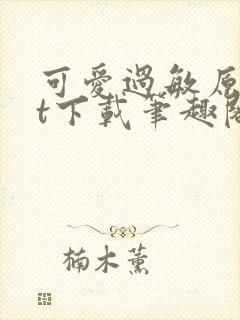 可愛過敏原
t下載筆趣閣
楠木薰